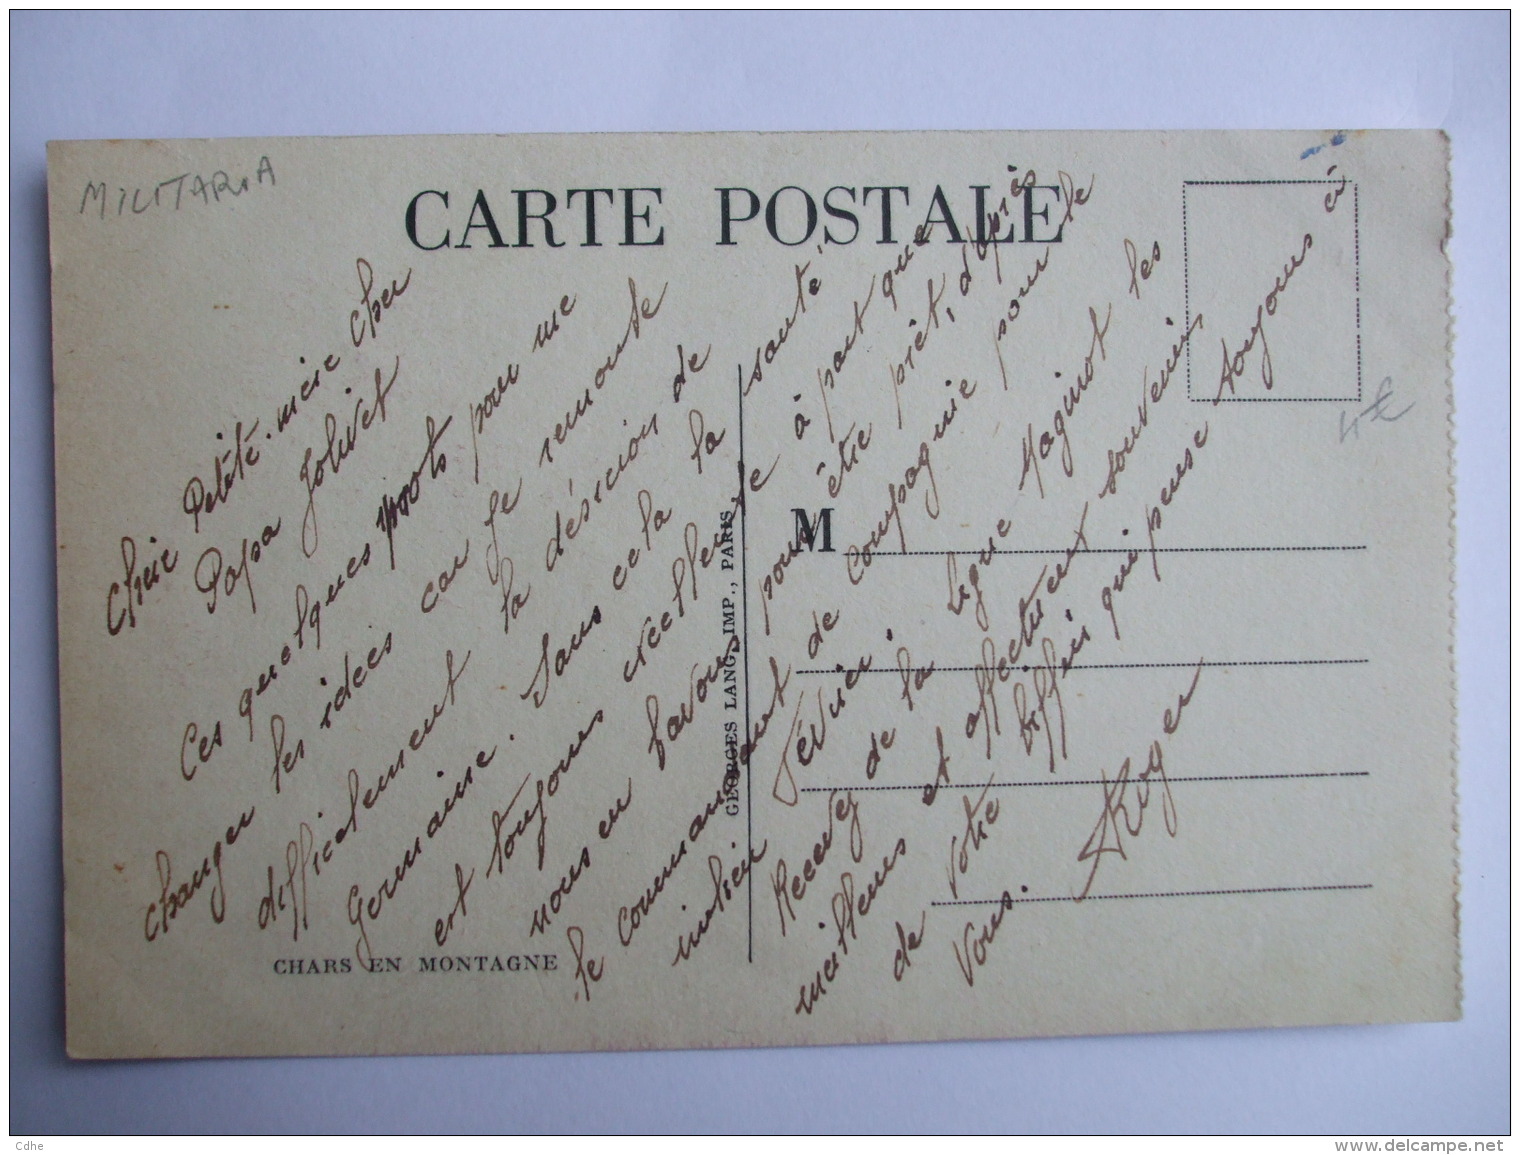 MILITARIA
CARTE POSTALE
Chère Petite-mère Cher
Papa Jolivet
Ces quelques mots pour me
changer les idées car je remonte
difficilement la désicion de
Germaine. Sans cela la santé
est toujours excellente à part que
nous en bavons pour être prêt, d'après
le commandant de compagnie pour le
milieu Février.
Recevez de la ligne Maginot les
meilleurs et affectueux souvenirs
de votre biffin qui pense toujours à
vous. Roger
M
4€
GEORGES LANG, IMP., PARIS
CHARS EN MONTAGNE
Cdhe
www.delcampe.net